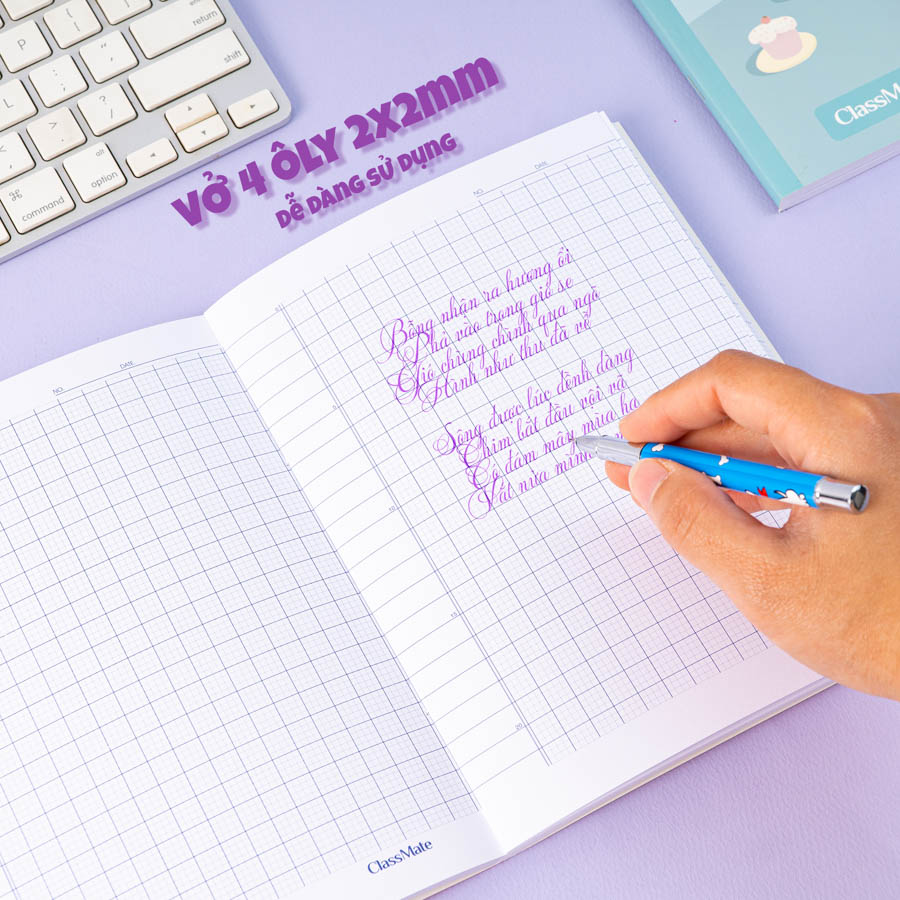 P
return
shift
L
alt
option
⌘
command
VỞ 4 ÔLY 2x2mm
DỄ DÀNG SỬ DỤNG
ClassM
NO.
DATE
NO.
DATE
Bỗng nhận ra hương ổi
Phả vào trong gió se
Gió chùng chình qua ngõ
Hình như thu đã về
Sông được lúc dềnh dàng
Chim bắt đầu vội vã
Có đám mây mùa hạ
Vắt nửa mình
5
10
15
20
ClassMate